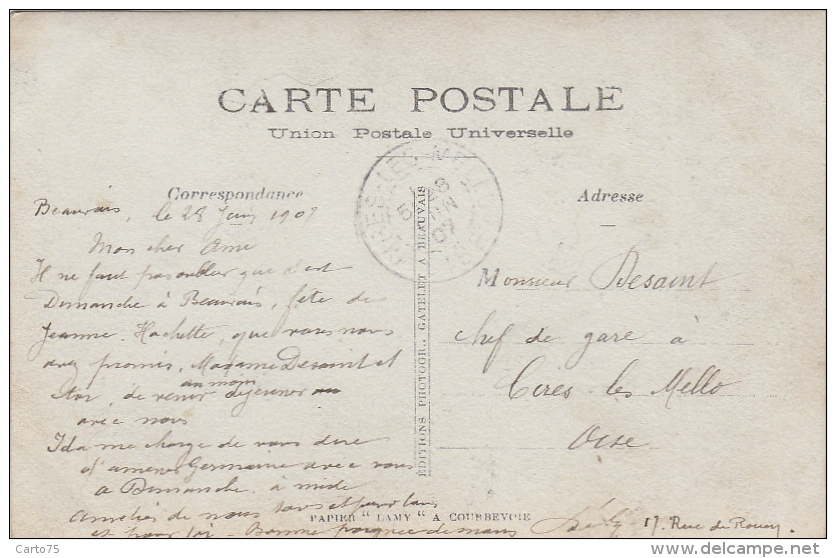 CARTE POSTALE
Union Postale Universelle
Correspondance
Adresse
Beauvais, le 28 Juin 1907
Mon cher Ami
Il ne faut pas oublier que c'est
Dimanche à Beauvais, fête de
Jeanne-Hachette, que vous nous
avez promis, Madame Desaint et
toi, de venir déjeuner
au moins
avec nous
Ida me charge de vous dire
d'amener Germaine avec vous
a Dimanche à midi
Amitiés de nous tous et pour
et pour toi - Bonne poignée de mains
17. Rue de Rouen
Monsieur Desaint
chef de gare à
Cires-les-Mello
Oise
CIRES-LES-MELLO
28
JUIN
07
OISE
EDITIONS PHOTOGR. GATELET A BEAUVAIS
PAPIER "LAMY" A COURBEVOIE
Carto75
delcampe.net